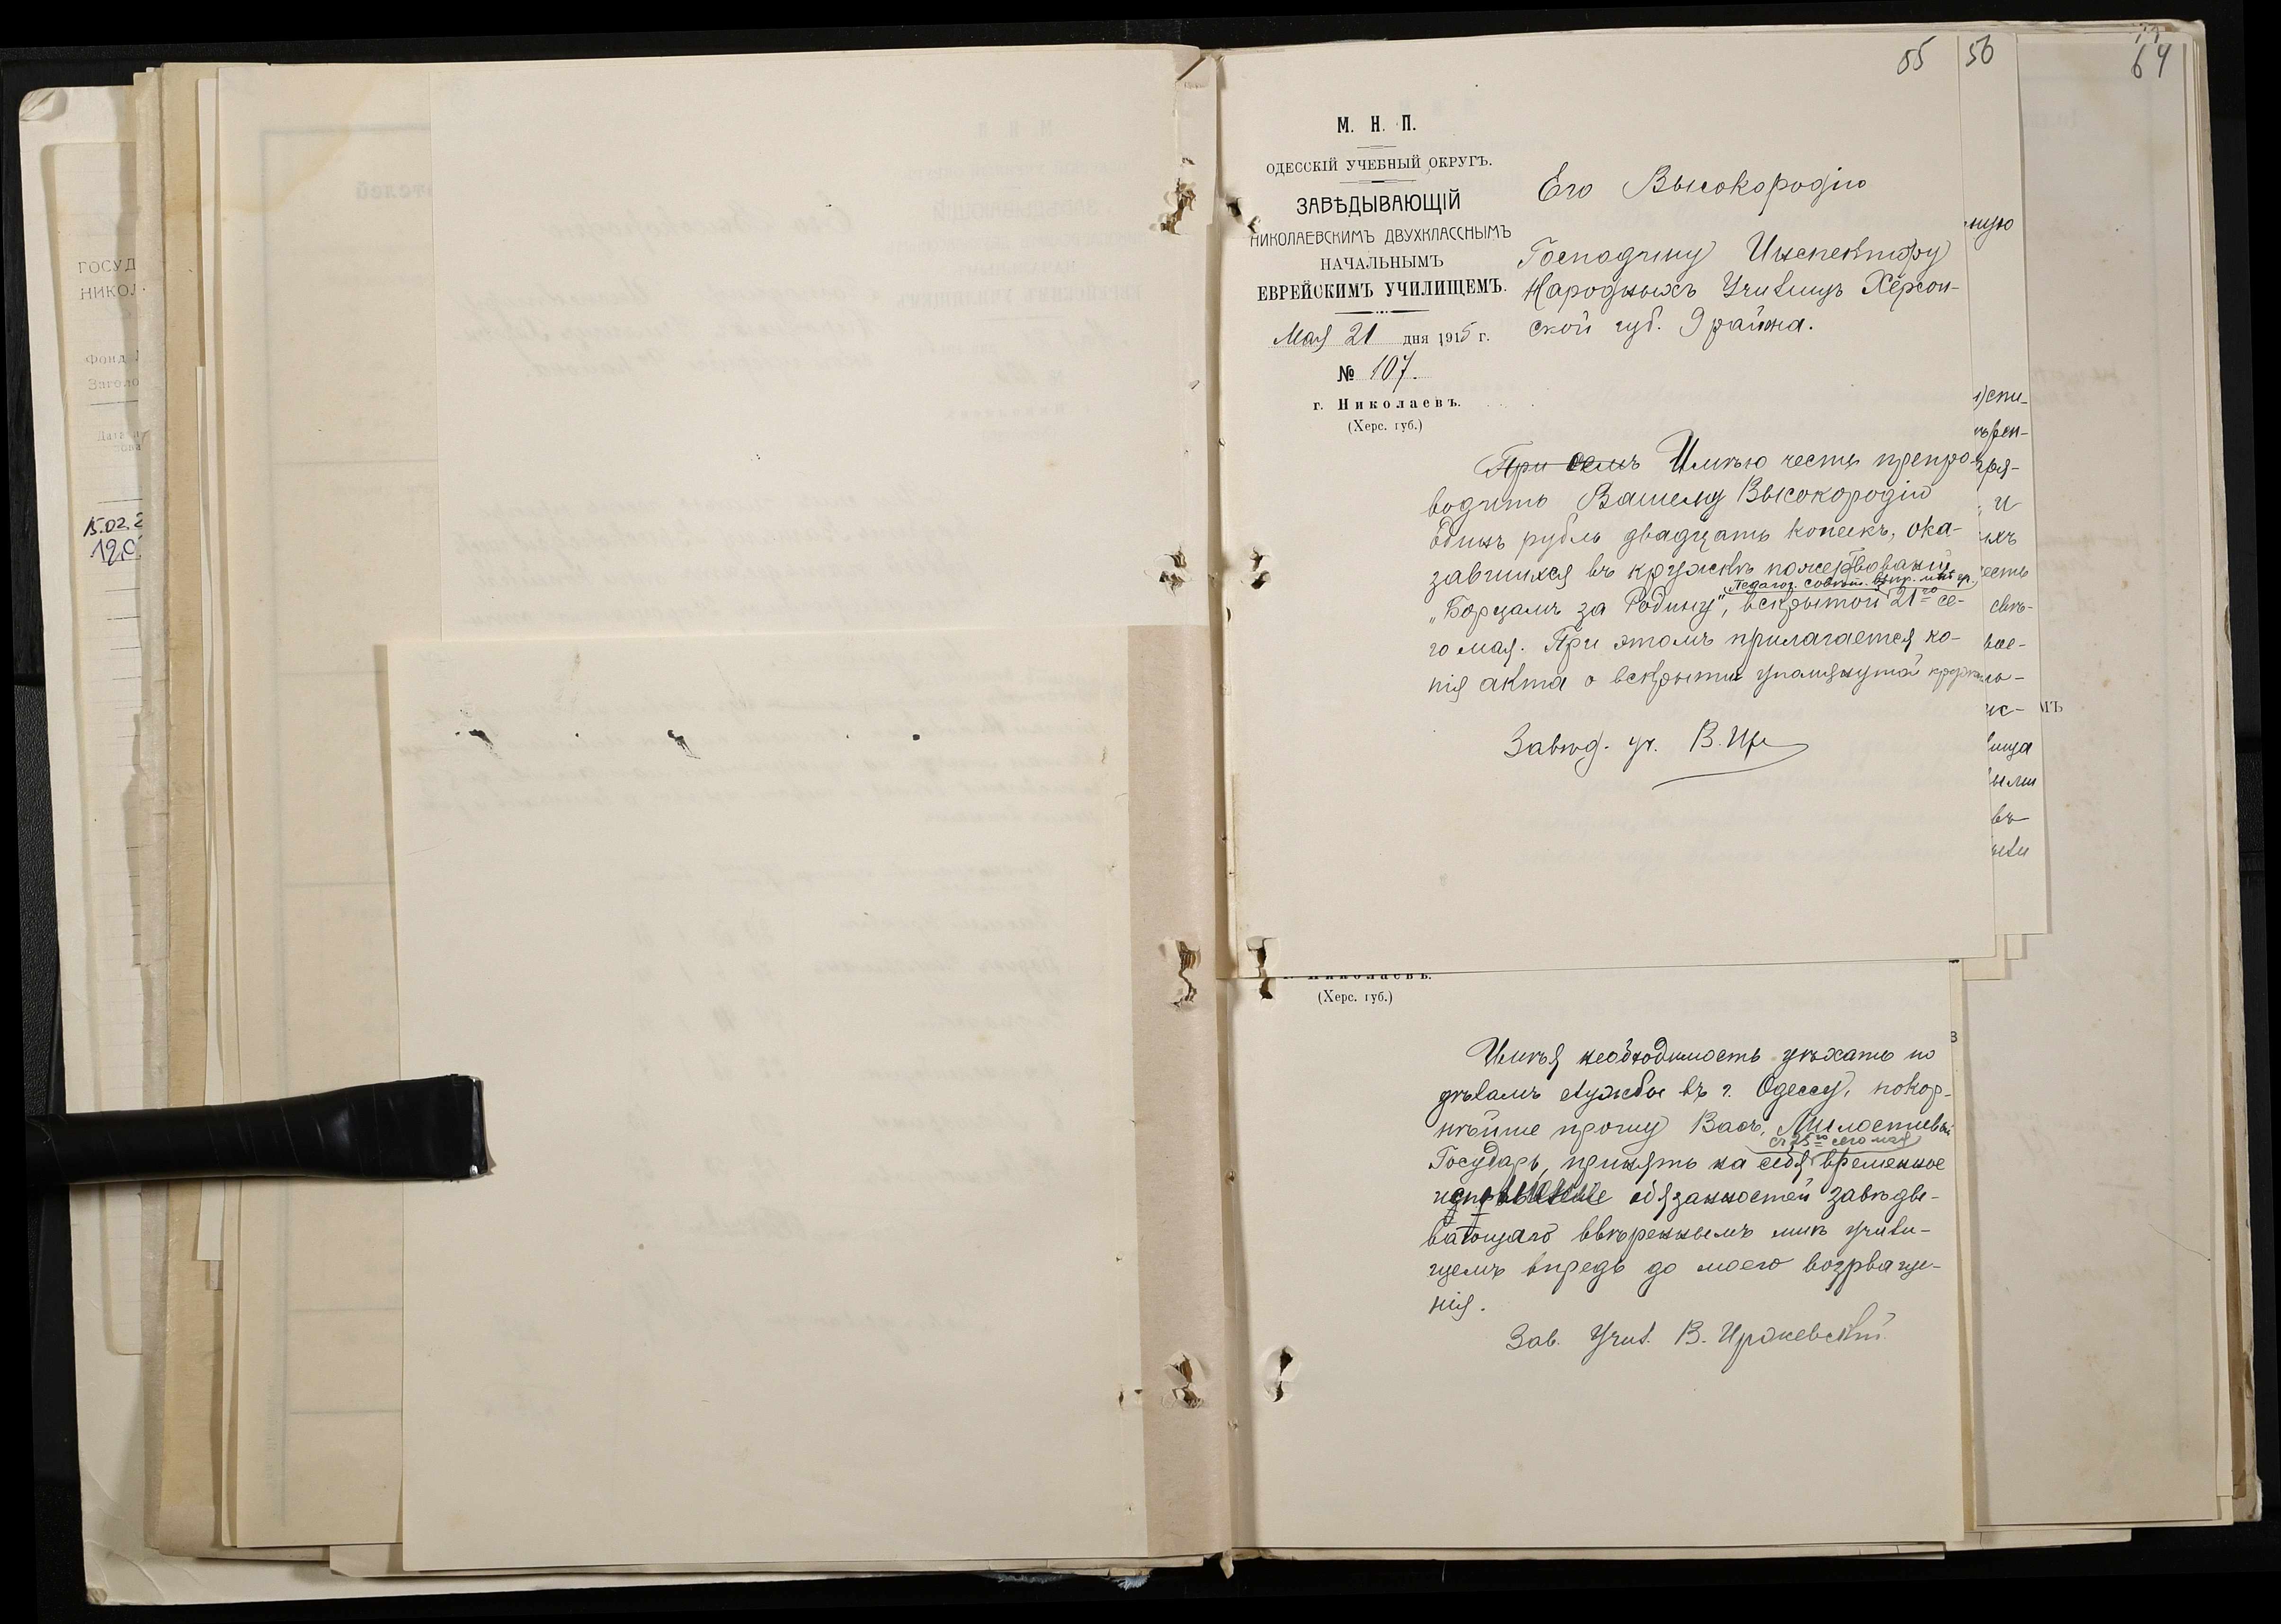 55
56
64
М. Н. П.
ОДЕССКІЙ УЧЕБНЫЙ ОКРУГЪ.
ЗАВѢДЫВАЮЩІЙ
НИКОЛАЕВСКИМЪ ДВУХКЛАССНЫМЪ
НАЧАЛЬНЫМЪ
ЕВРЕЙСКИМЪ УЧИЛИЩЕМЪ.
Мая 21 дня 1915 г.
№ 107.
г. Николаевъ.
(Херс. губ.)
Его Высокородію
Господину Инспектору
Народныхъ Училищъ Херсон-
ской губ. 9 района.
При семъ Имѣю честь препро-
водить Вашему Высокородію
одинъ рубль двадцать копеекъ, ока-
завшихся въ кружкѣ пожертвованій
Педагог. Совѣт.
„Борцамъ за Родину", вскрытой 21го се-
го мая. При этомъ прилагается ко-
пія акта о вскрытіи упомянутой кружки
Завѣд. уч. В. Ир
николаевъ.
(Херс. губ.)
Имѣя необходимость уѣхать по
дѣламъ службы въ г. Одессу, покор-
нѣйше прошу Васъ, Милостивый
съ 25го сего мая
Государь, принять на себя временное
исполненіе обязанностей завѣды-
вающаго ввѣреннымъ мнѣ учили-
щемъ впредь до моего возвраще-
нія.
Зав. Учил. В. Иржевскій
ную
спи-
и
ихъ
есть
свѣ-
вое-
ища
были
въ
МЪ
ГОСУД
НИКОЛ
Фонд
Заголо
15.02.2